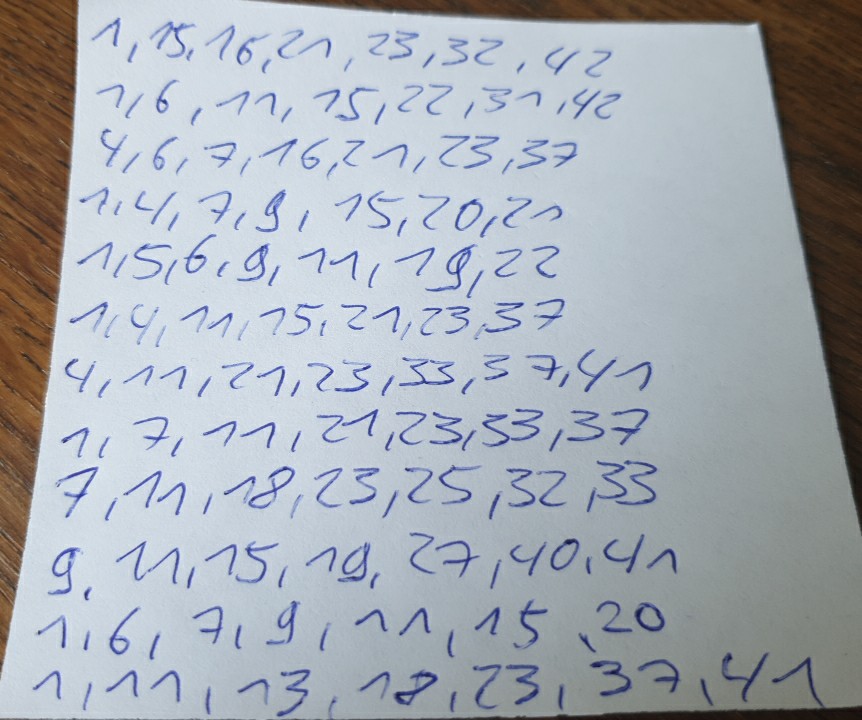 1, 15, 16, 21, 23, 32, 42
1, 6, 11, 15, 22, 31, 42
4, 6, 7, 16, 21, 23, 37
1, 4, 7, 9, 15, 20, 21
1, 5, 6, 9, 11, 19, 22
1, 4, 11, 15, 21, 23, 37
4, 11, 21, 23, 33, 37, 41
1, 7, 11, 21, 23, 33, 37
7, 11, 18, 23, 25, 32, 33
9, 11, 15, 19, 27, 40, 41
1, 6, 7, 9, 11, 15, 20
1, 11, 13, 18, 23, 37, 41